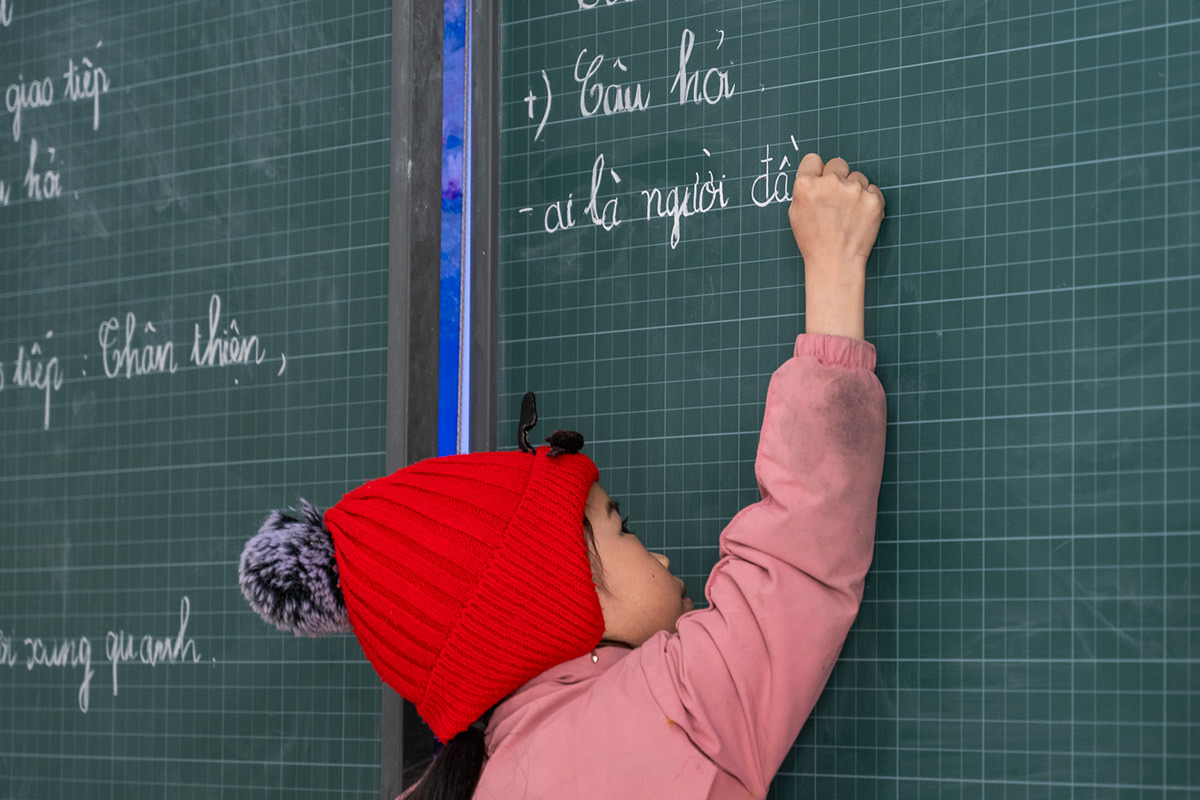 giao tiếp
hỏi.
tiếp : Thân thiện,
xung quanh.
+) Câu hỏi.
- ai là người đầ